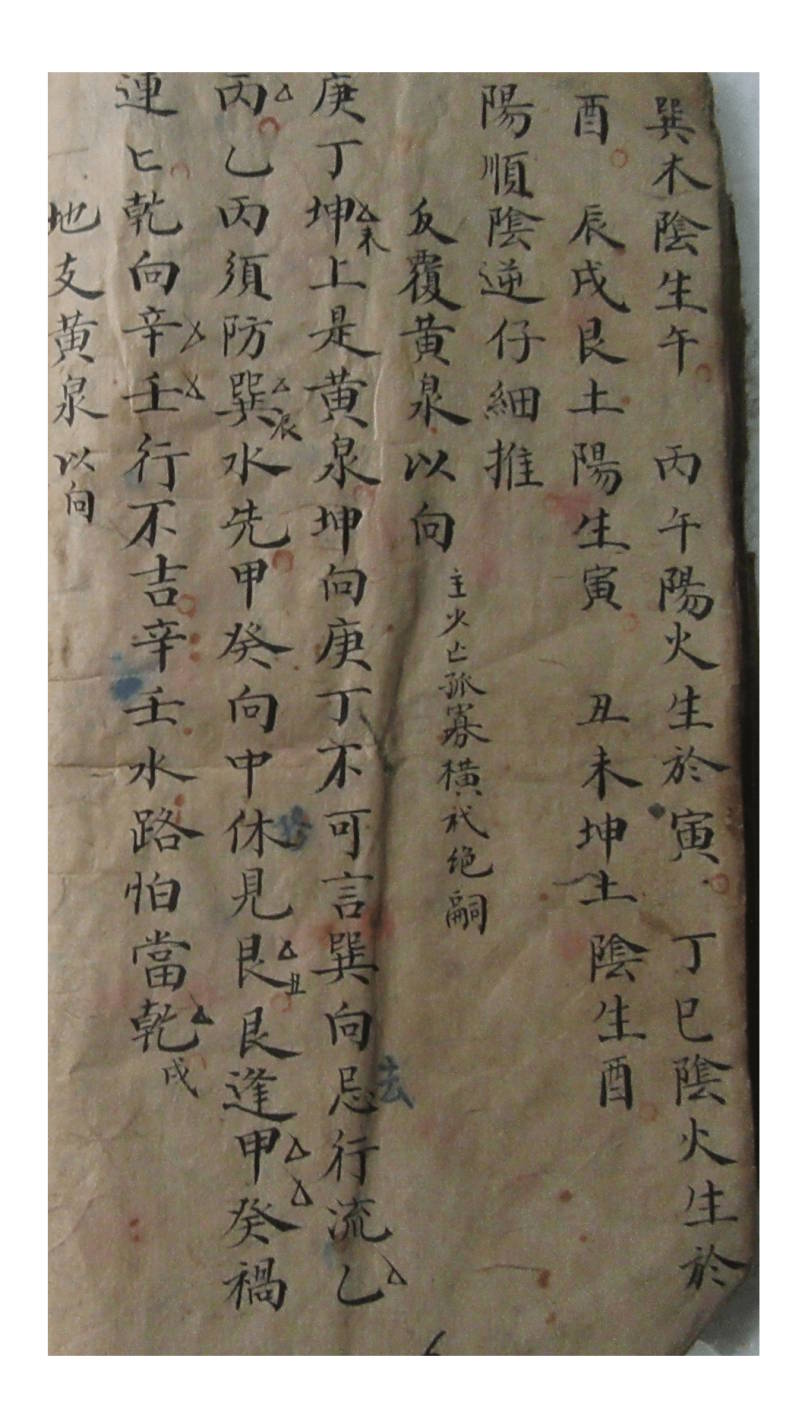 巽木陰生午　丙午陽火生於寅　丁巳陰火生於
酉　辰戌艮土陽生寅　丑未坤土陰生酉
陽順陰逆仔細推
反覆黄泉以向
主火亡孤寡橫祧绝嗣
庚丁坤上是黄泉坤向庚丁不可言巽向忌行流乙
未
去
丙乙丙須防巽水先甲癸向中休見艮艮逢甲癸禍
辰
丑
連匕乾向辛壬行不吉辛壬水路怕當乾
戌
地支黄泉以向